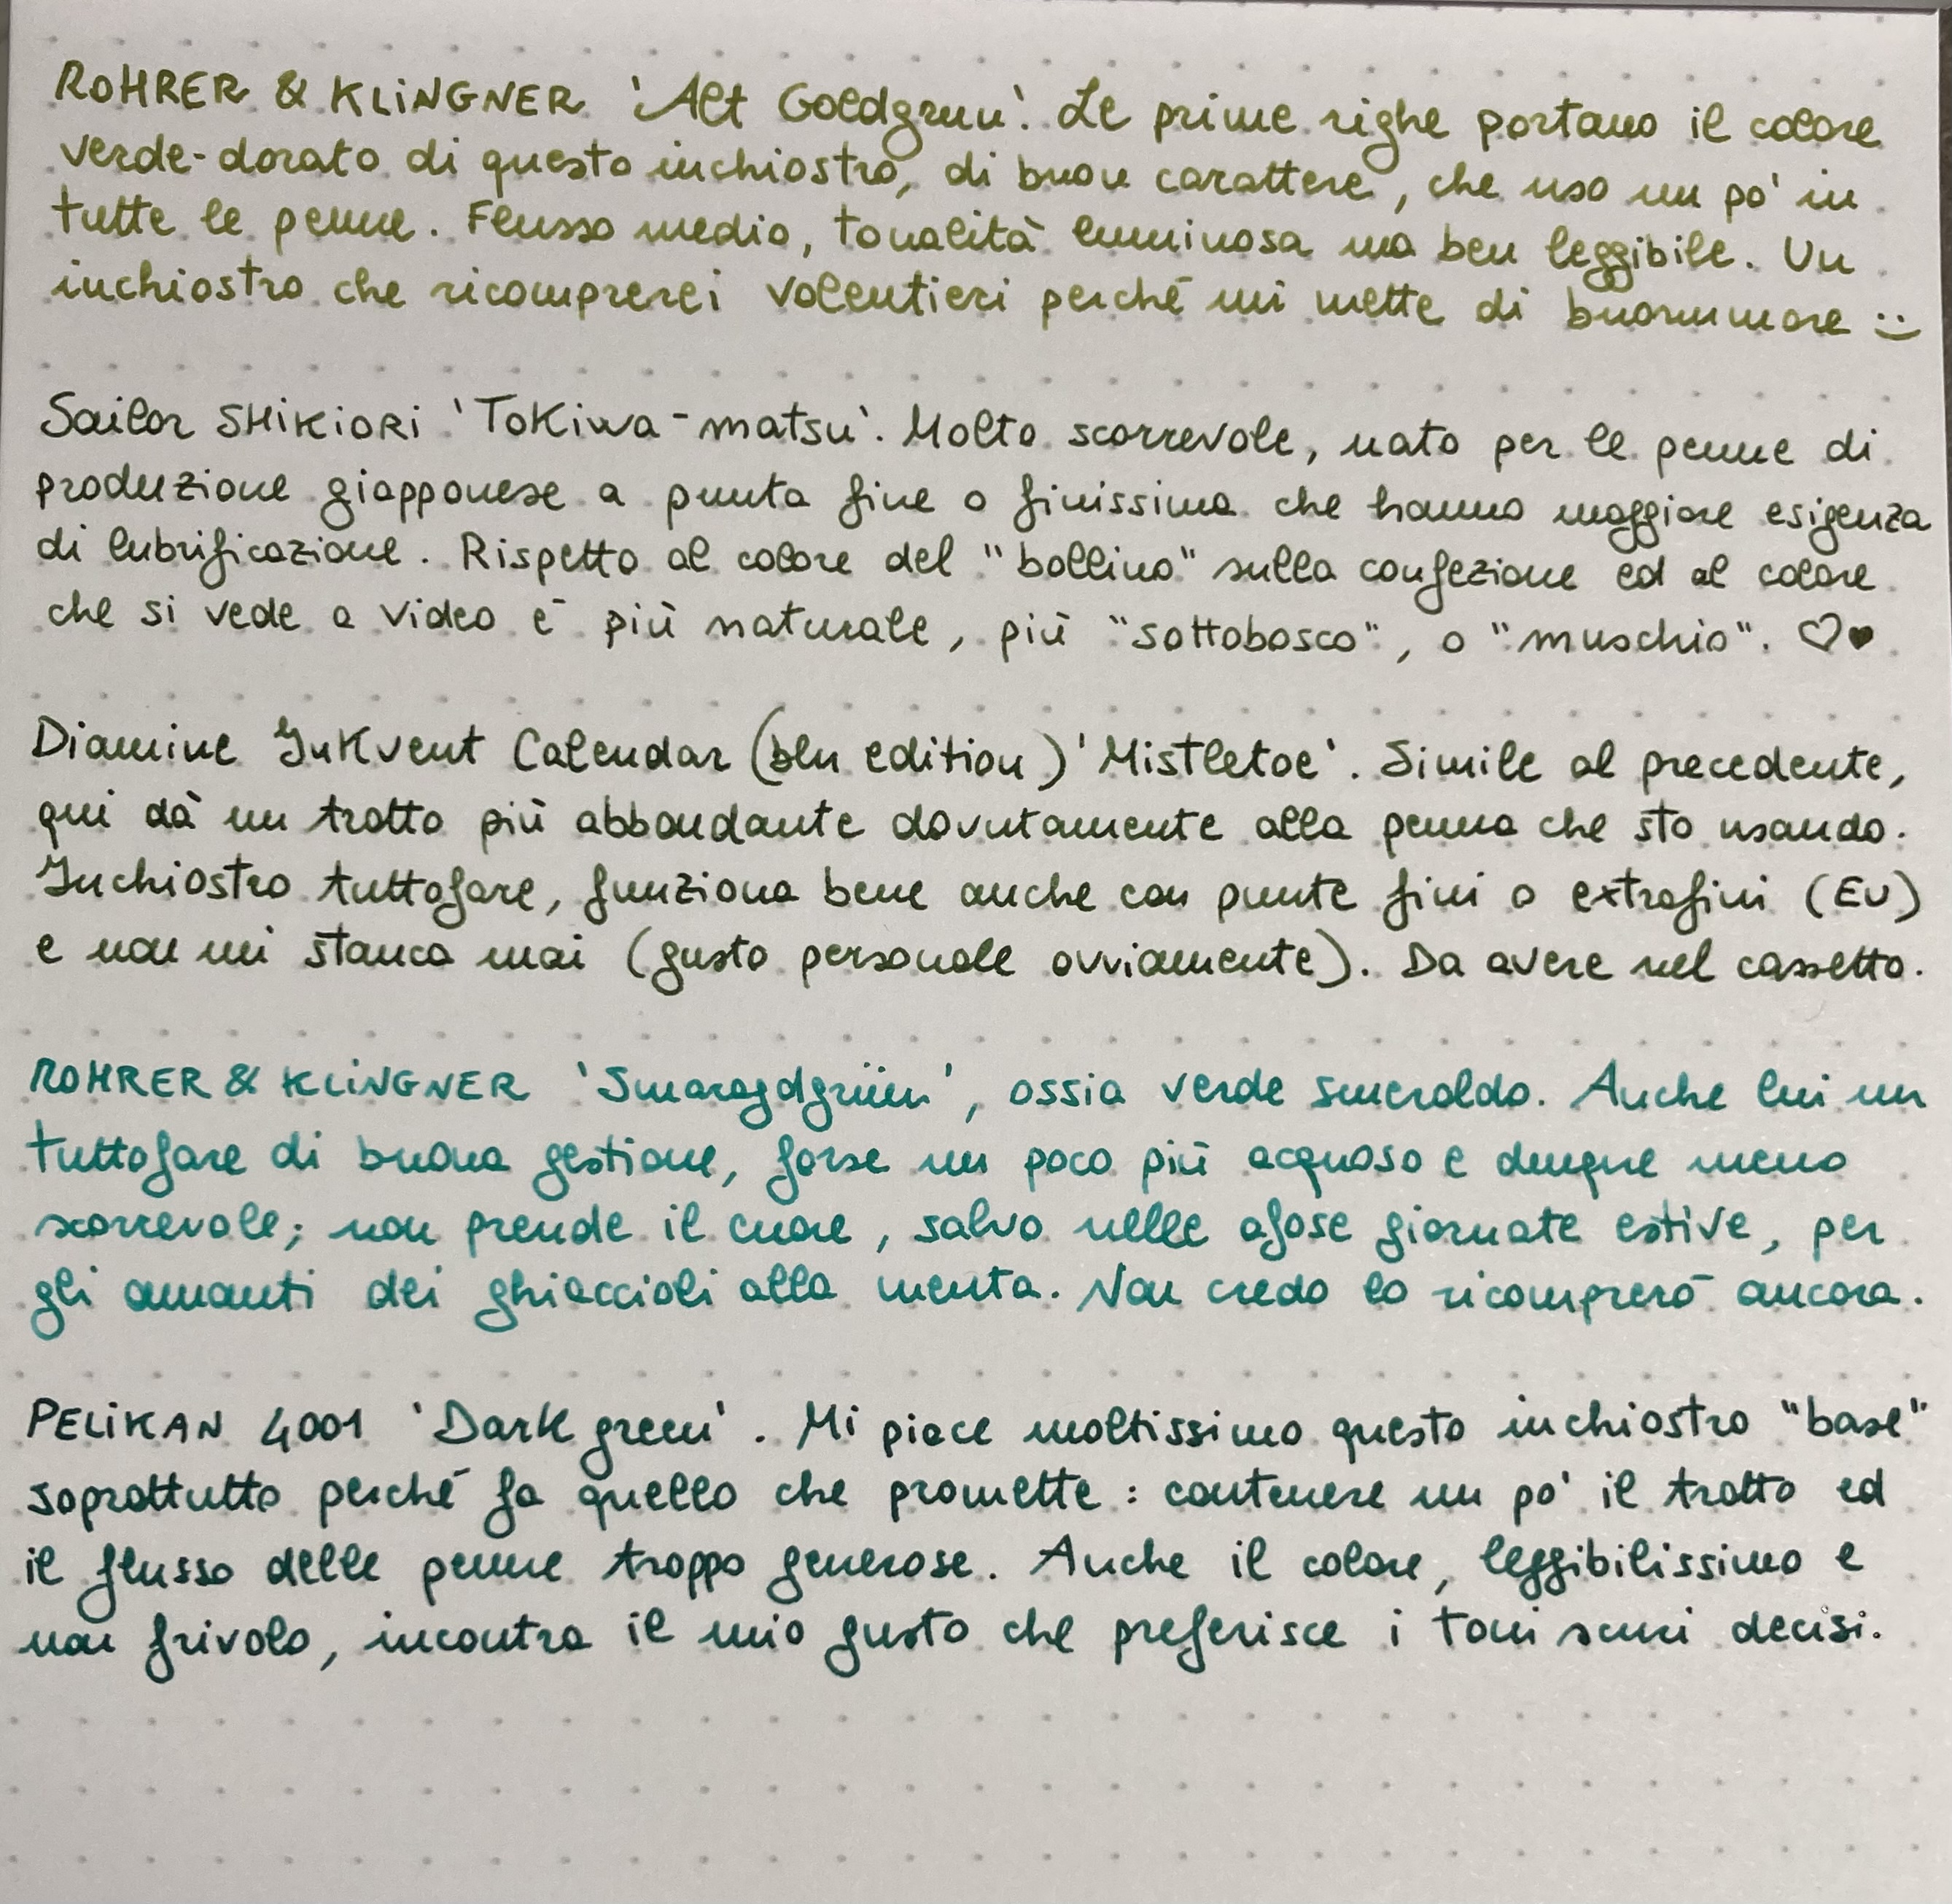 ROHRER & KLINGNER 'Alt Goldgrun'. Le prime righe portano il colore
verde-dorato di questo inchiostro, di buon carattere, che uso un po' in
tutte le penne. Flusso medio, tonalità luminosa ma ben leggibile. Un
inchiostro che ricomprerei volentieri perché mi mette di buonumore :)
Sailor SHIKIORI 'Tokiwa-matsu'. Molto scorrevole, nato per le penne di
produzione giapponese a punta fine o finissima che hanno maggiore esigenza
di lubrificazione. Rispetto al colore del "bollino" sulla confezione ed al colore
che si vede a video è più naturale, più "sottobosco", o "muschio". ♡♥
Diamine InkVent Calendar (blu edition) 'Mistletoe'. Simile al precedente,
qui dà un tratto più abbondante dovutamente alla penna che sto usando.
Inchiostro tuttofare, funziona bene anche con punte fini o extrafini (EU)
e non mi stanca mai (gusto personale ovviamente). Da avere nel cassetto.
ROHRER & KLINGNER 'Smaragdgrün', ossia verde smeraldo. Anche lui un
tuttofare di buona gestione, forse un poco più acquoso e dunque meno
scorrevole; non prende il cuore, salvo nelle afose giornate estive, per
gli amanti dei ghiaccioli alla menta. Non credo lo ricomprerò ancora.
PELIKAN 4001 'Dark green'. Mi piace moltissimo questo inchiostro "base"
soprattutto perché fa quello che promette: contenere un po' il tratto ed
il flusso delle penne troppo generose. Anche il colore, leggibilissimo e
non frivolo, incontra il mio gusto che preferisce i toni scuri decisi.